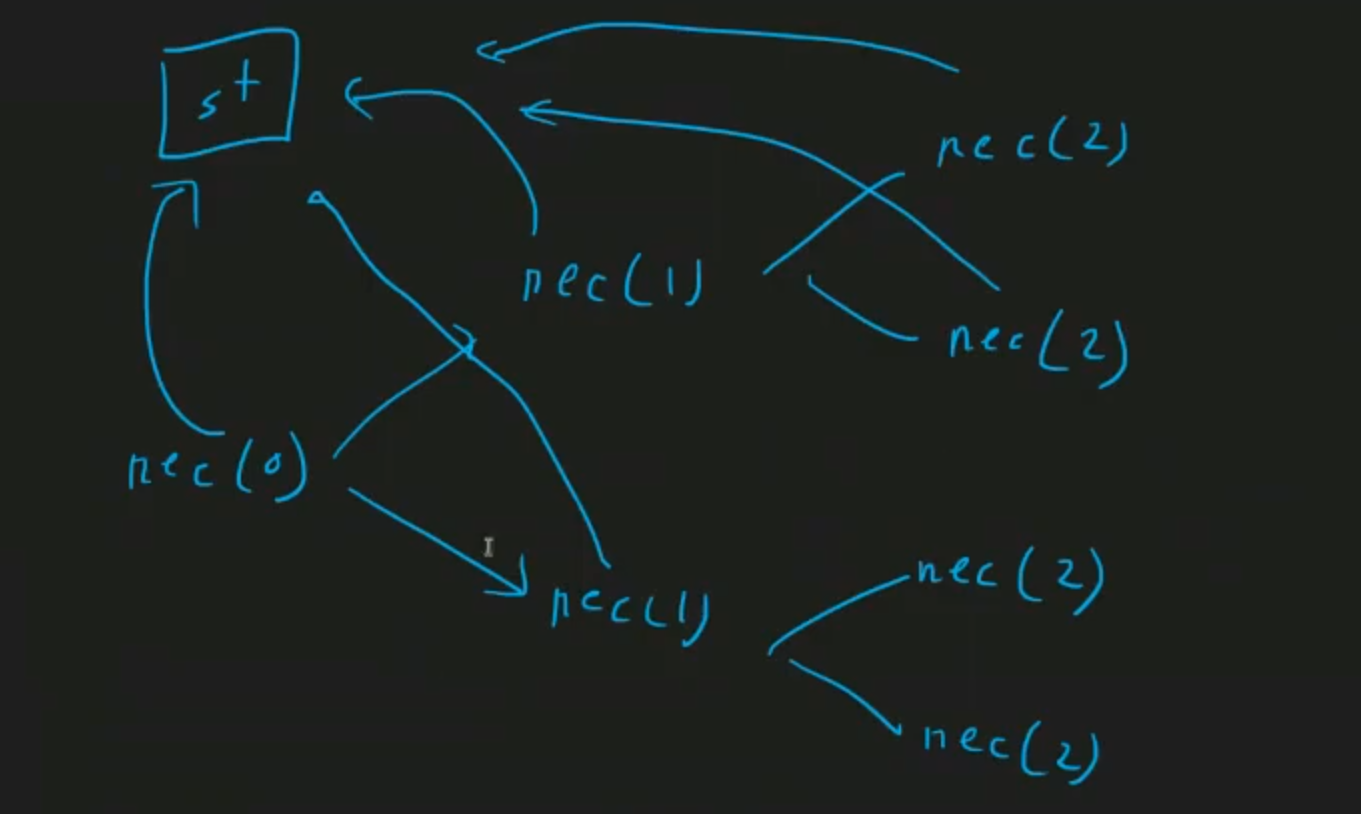 st
rec(2)
rec(1)
rec(2)
rec(0)
rec(2)
rec(1)
rec(2)